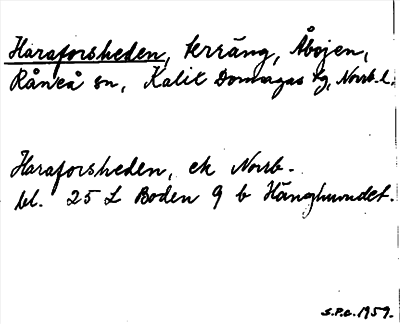 Haraforsheden, terräng, Åbojen,
Råneå sn, Kalix Domsagas tg, Norrb. l.
Haraforsheden, ek Norrb.-
bl. 25 L Boden 9 b Hänghundet.
S.P.a. 1959.